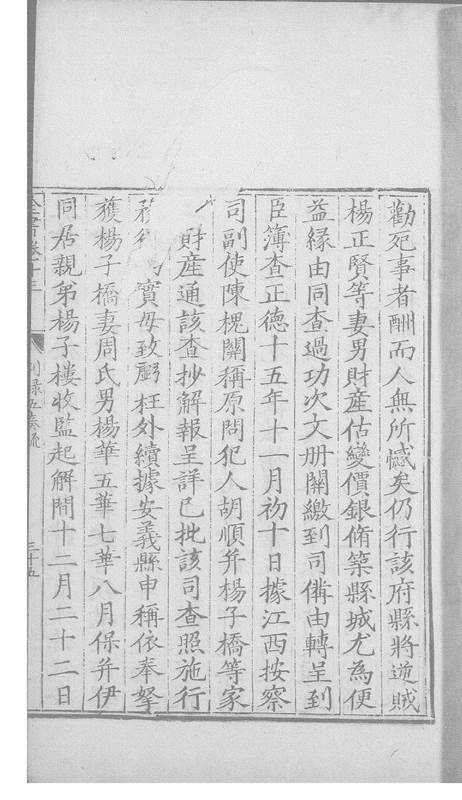 勸死事者酬而人無所憾矣仍行該府縣將逆賊
楊正賢等妻男財產估變價銀脩築縣城尤為便
益緣由同查過功次文册關繳到司備由轉呈到
臣簿查正德十五年十一月初十日據江西按察
司副使陳槐關稱原問犯人胡順并楊子橋等家
財產通該查抄解報呈詳已批該司查照施行
實毋致虧枉外續據安義縣申稱依奉拏
獲楊子橋妻周氏男楊華五華七華八月保并伊
同居親弟楊子樓收監起解間十二月二十二日
全書卷十三 別錄五奏疏 三十五